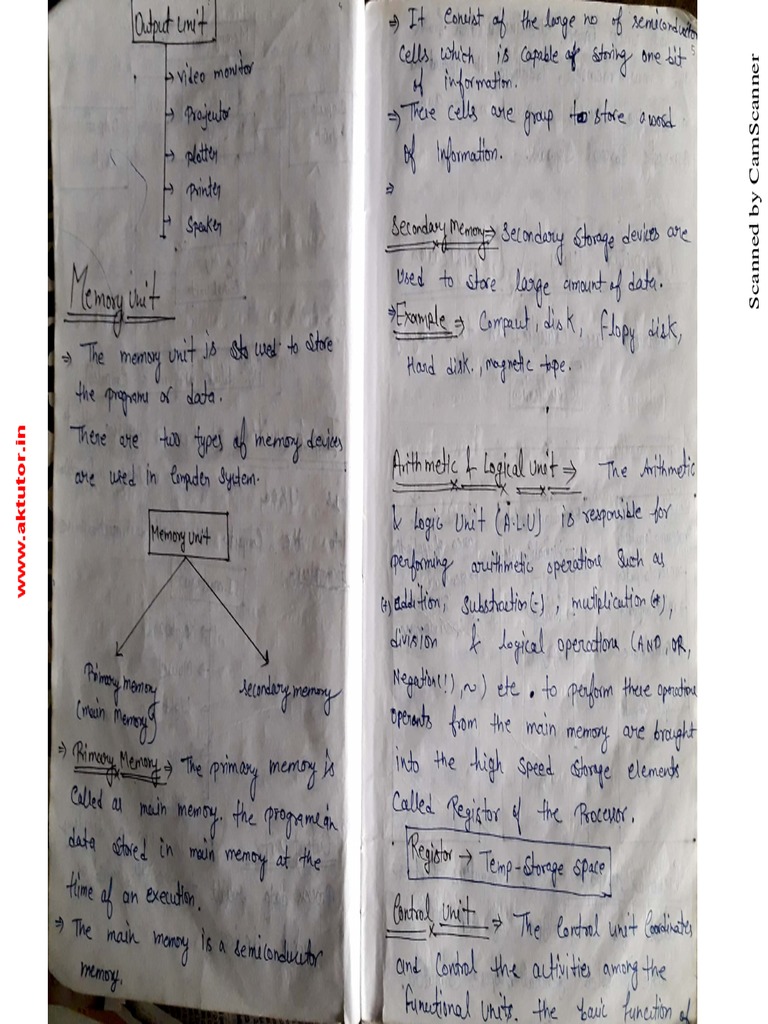 Output unit
→ video monitor
→ Projector
→ plotter
→ printer
→ Speaker
Memory Unit
⇒ The memory unit is used to store
the programs or data.
There are two types of memory devices
are used in Computer System.
Memory unit
Primary memory
(main Memory)
secondary memory
⇒ Primary Memory → The primary memory is
Called as main memory. the programe in
data stored in main memory at the
time of an execution.
⇒ The main memory is a semiconductor
memory.
⇒ It Consist of the large no of semiconductor
cells which is capable of storing one bit
of information.
⇒ These cells are group to store a word
of Information.
⇒
Secondary Memory ⇒ Secondary storage devices are
used to store large amount of data.
⇒ Example ⇒ Compact, disk, flopy disk,
Hard disk., magnetic tape.
Arithmetic & Logical unit ⇒ The Arithmetic
& Logic Unit (A.L.U) is responsible for
performing arithmetic operations such as
(+) addition, substraction(-), mutiplication(*),
division & logical operations (AND, OR,
Negation(!), ~) etc. to perform these operations
operants from the main memory are brought
into the high speed storge elements
Called Registor of the Processor.
Registor → Temp-Storage space
Control Unit ⇒ The Control unit Coordinates
and Control the activities among the
functional units. the basic function of
www.aktutor.in
Scanned by CamScanner